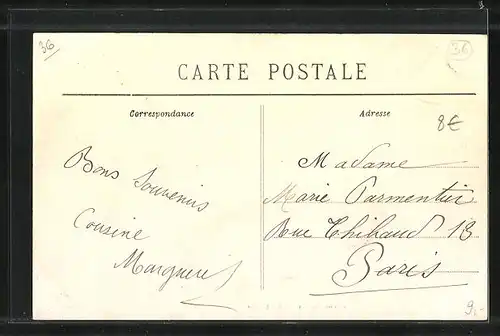 36
36
CARTE POSTALE
Correspondance
Adresse
8€
Bons Souvenirs
Cousine
Madame
Marie Parmentier
Rue Thibaud 13
Paris
9,-